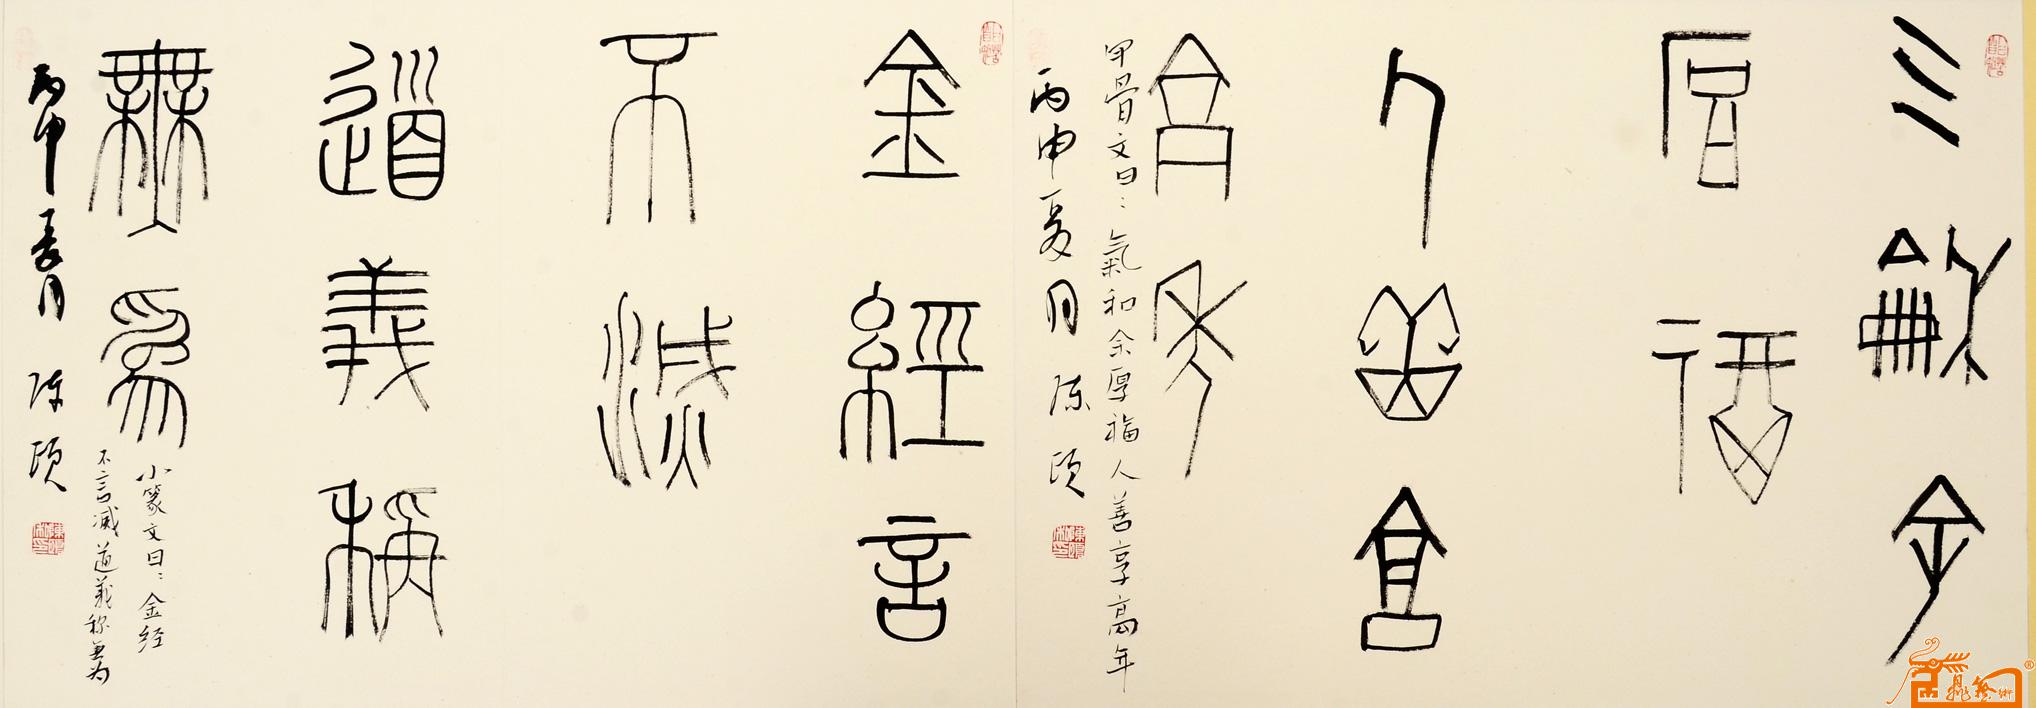 气龢余
厚福
人善享
高年
甲骨文曰：氣和余厚福人善享高年
丙申夏月 陈頎
金經言
不滅
道義稱
無爲
小篆文曰：金经
不言减道義称無为
丙申夏月 陈頎